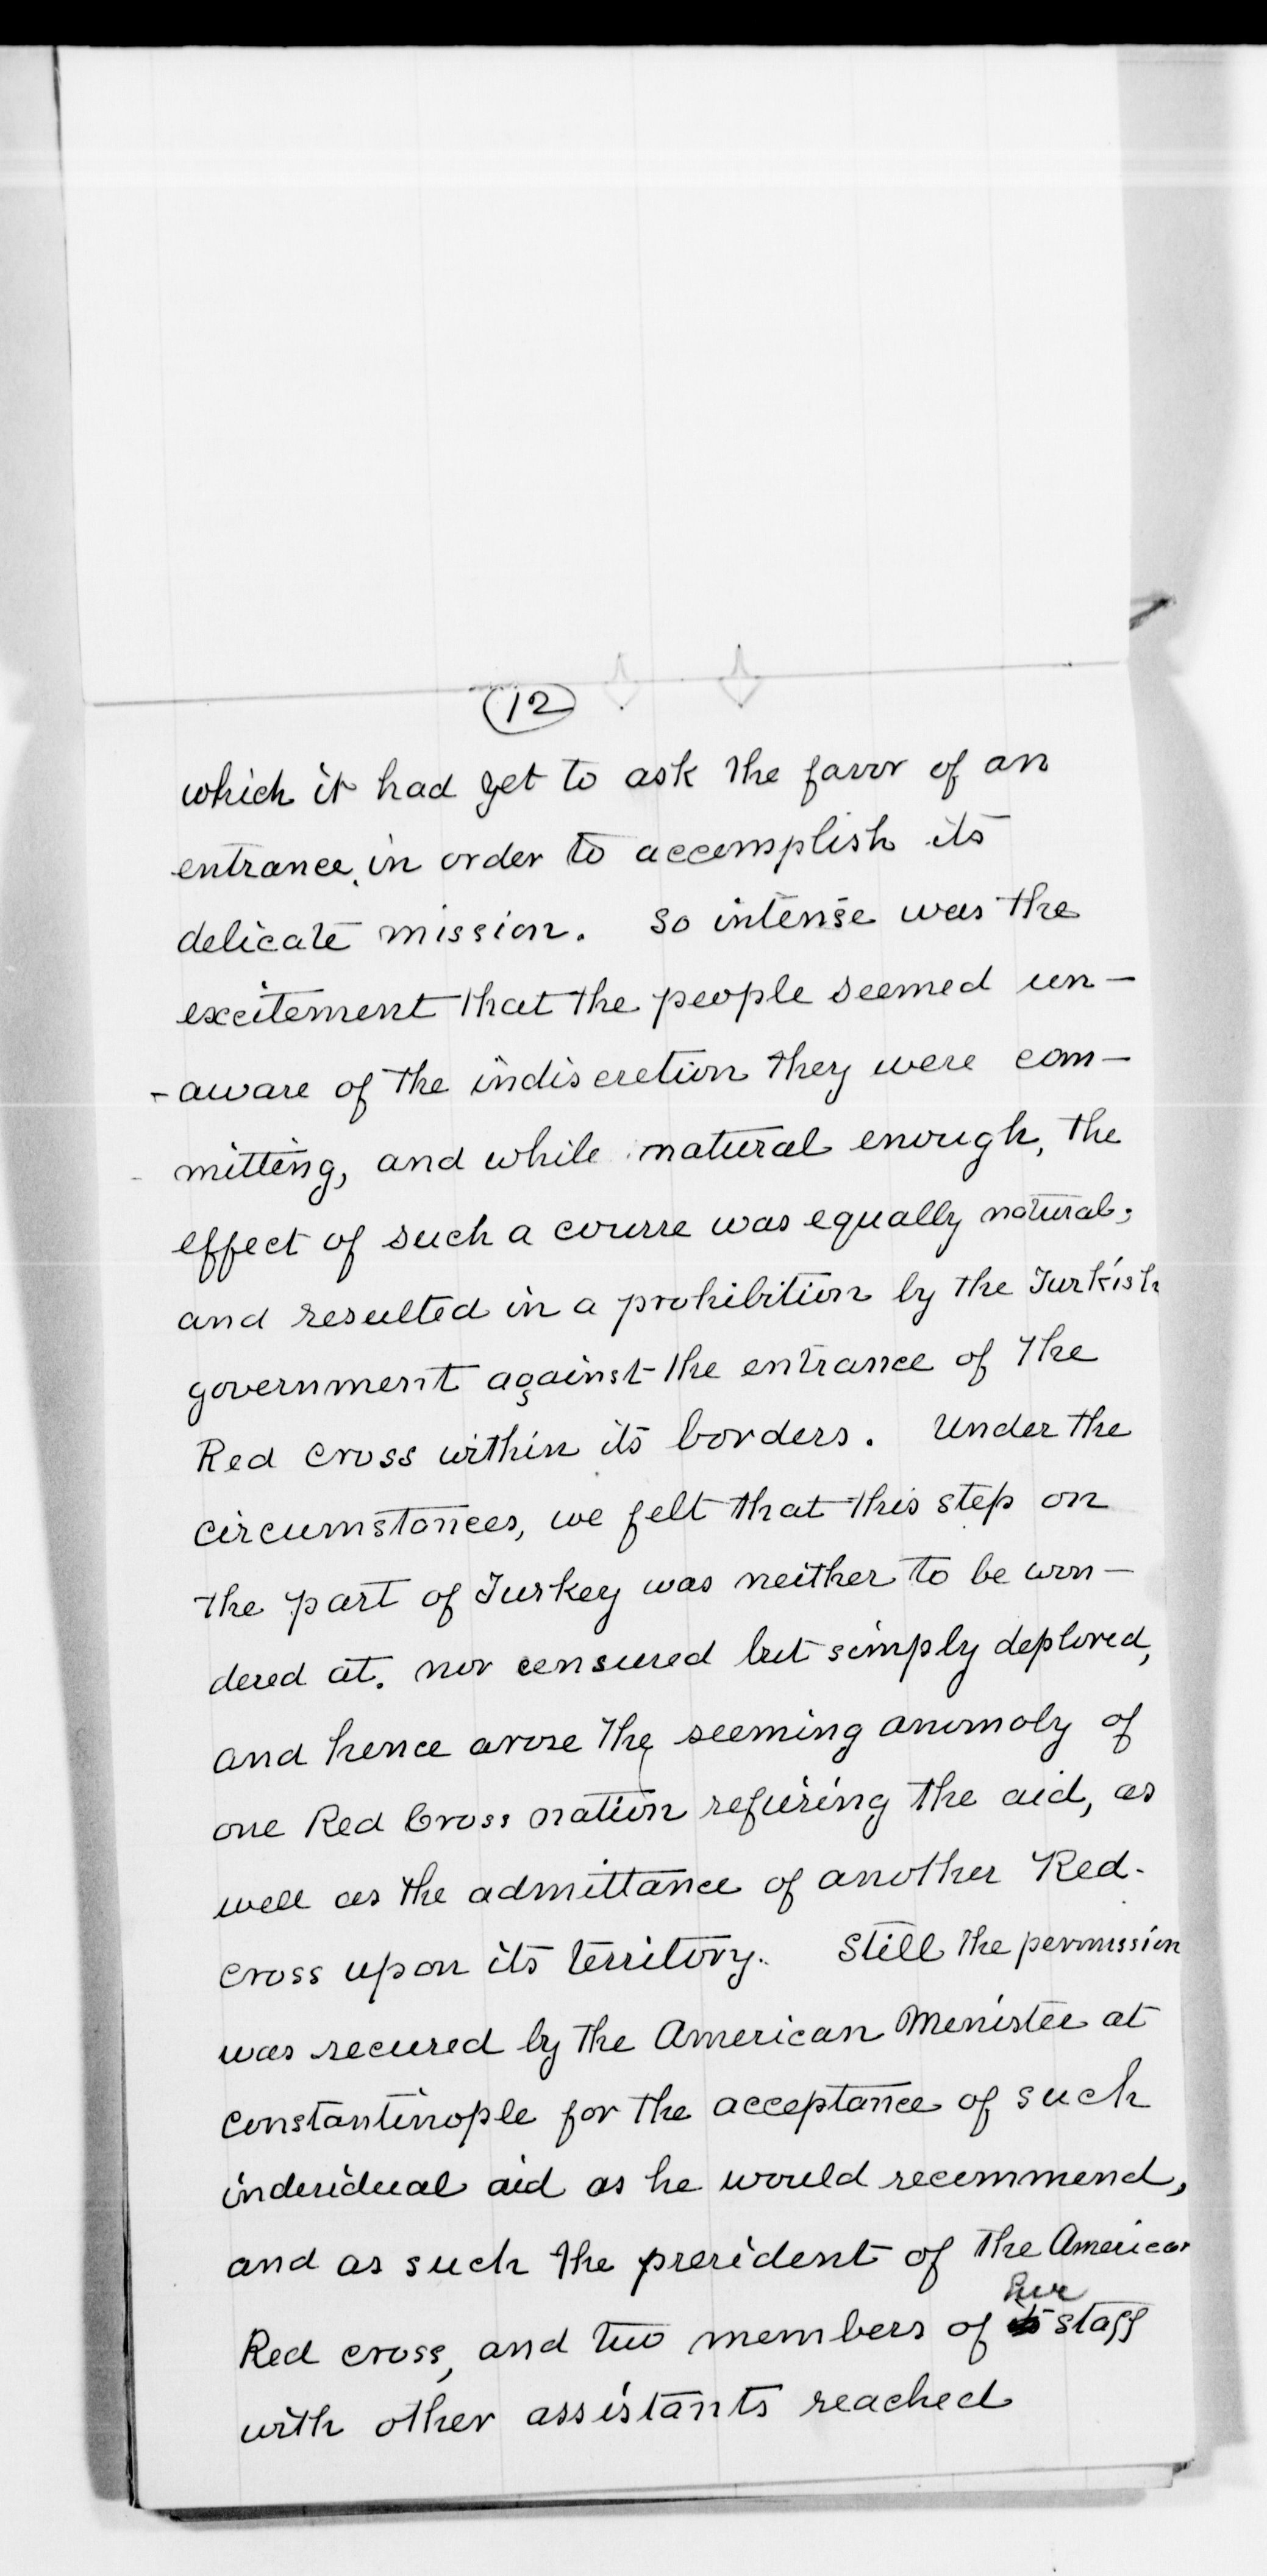 (12)
which it had yet to ask the favor of an
entrance, in order to accomplish its
delicate mission. So intense was the
excitement that the people seemed un-
-aware of the indiscretion they were com-
mitting, and while natural enough, the
effect of such a course was equally natural,
and resulted in a prohibition by the Turkish
government against the entrance of the
Red Cross within its borders. Under the
circumstances, we felt that this step on
the part of Turkey was neither to be won-
dered at. nor censured but simply deplored,
and hence arose the seeming anomoly of
one Red Cross nation refusing the aid, as
well as the admittance of another Red-
Cross upon its territory. Still the permission
was secured by the American Minister at
Constantinople for the acceptance of such
individual aid as he would recommend,
and as such the president of the American
her
Red Cross, and two members of its staff
with other assistants reached